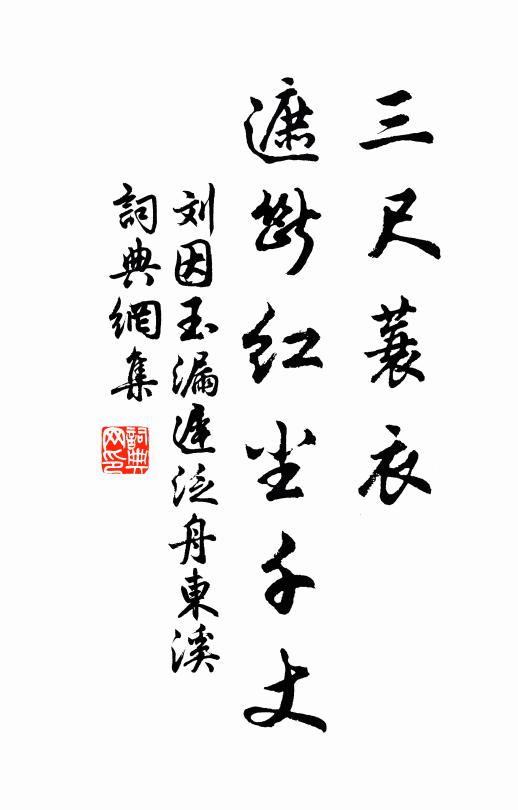 三尺蓑衣
遮斷紅尘千丈
刘因玉漏遲泛舟東溪
詞典網集
詞典网印